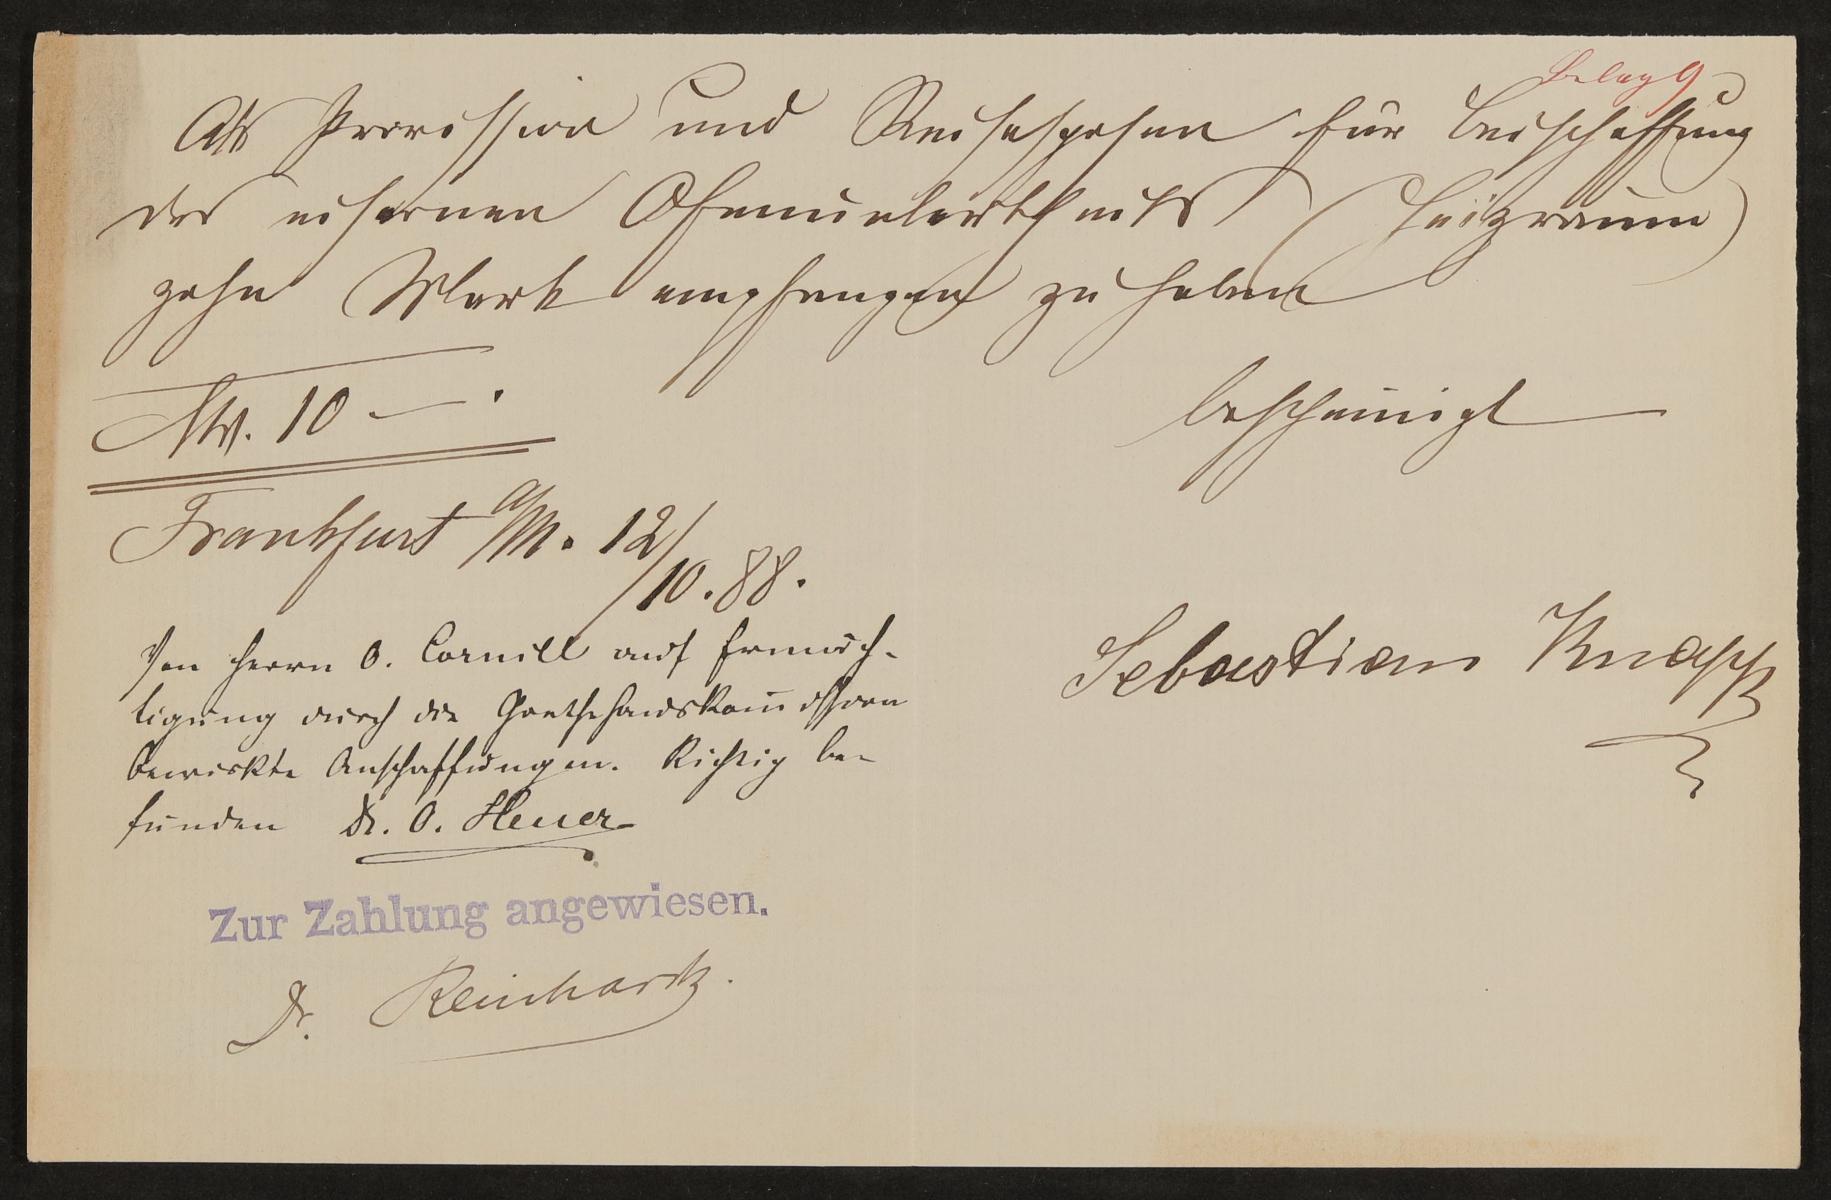 Beleg 9
Als Provission und Reisespesen für Beischaffung
des eisernen Ofenuntertheils (Heizraum)
zehn Mark empfangen zu haben
bescheinigt
Mk. 10 —.
Frankfurt a/M. 12/10.88.
Sebastian Knapp
Von Herrn O. Cornill auf Ermäch-
tigung durch die Goethehauskom̅ission
bewirkte Anschaffungen. Richtig be-
funden Dr. O. Heuer
Zur Zahlung angewiesen.
Dr. Reinhardt.